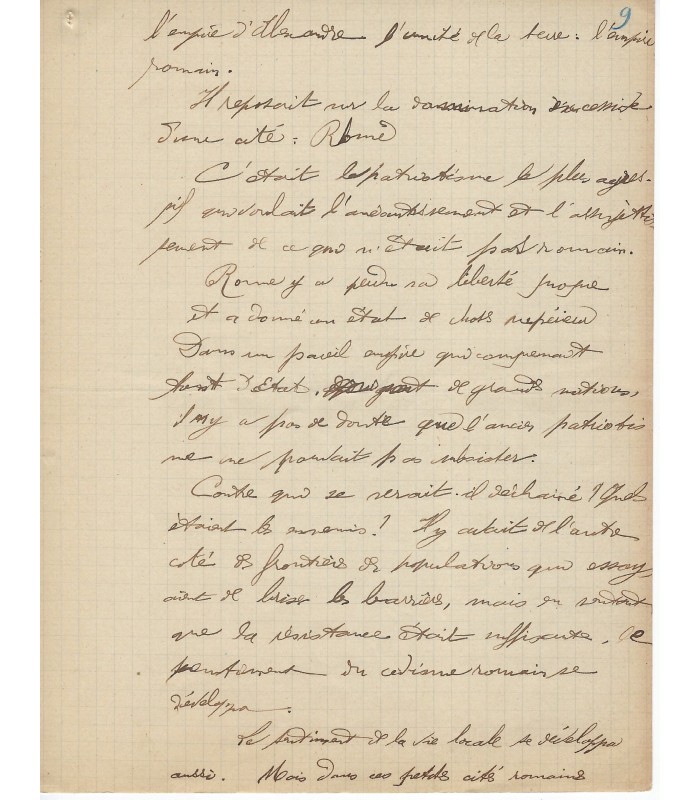 9
l'empire d'Alexandre l'unité de la terre : l'empire
romain.
Il reposait sur la domination excessive
d'une cité : Rome
C'était le patriotisme le plus agres-
sif qui voulait l'anéantissement et l'assujettis-
sement de ce qui n'était pas romain.
Rome y a perdu sa liberté propre
et a donné un état de choses
Dans un pareil empire qui comprenait
tant d'Etat, de grands nations,
il n'y a pas de doute que l'ancien patriotis
me ne pouvait pas subsister.
Contre qui se serait-il déchainé ? Quels
étaient les ennemis ? Il y avait de l'autre
coté des frontières des populations qui essay-
aient de briser les barrières, mais en sentant
que la résistance était suffisante, le
sentiment du romain se
développa.
Le sentiment de la vie locale se développa
aussi. Mais dans ces petits cités romains